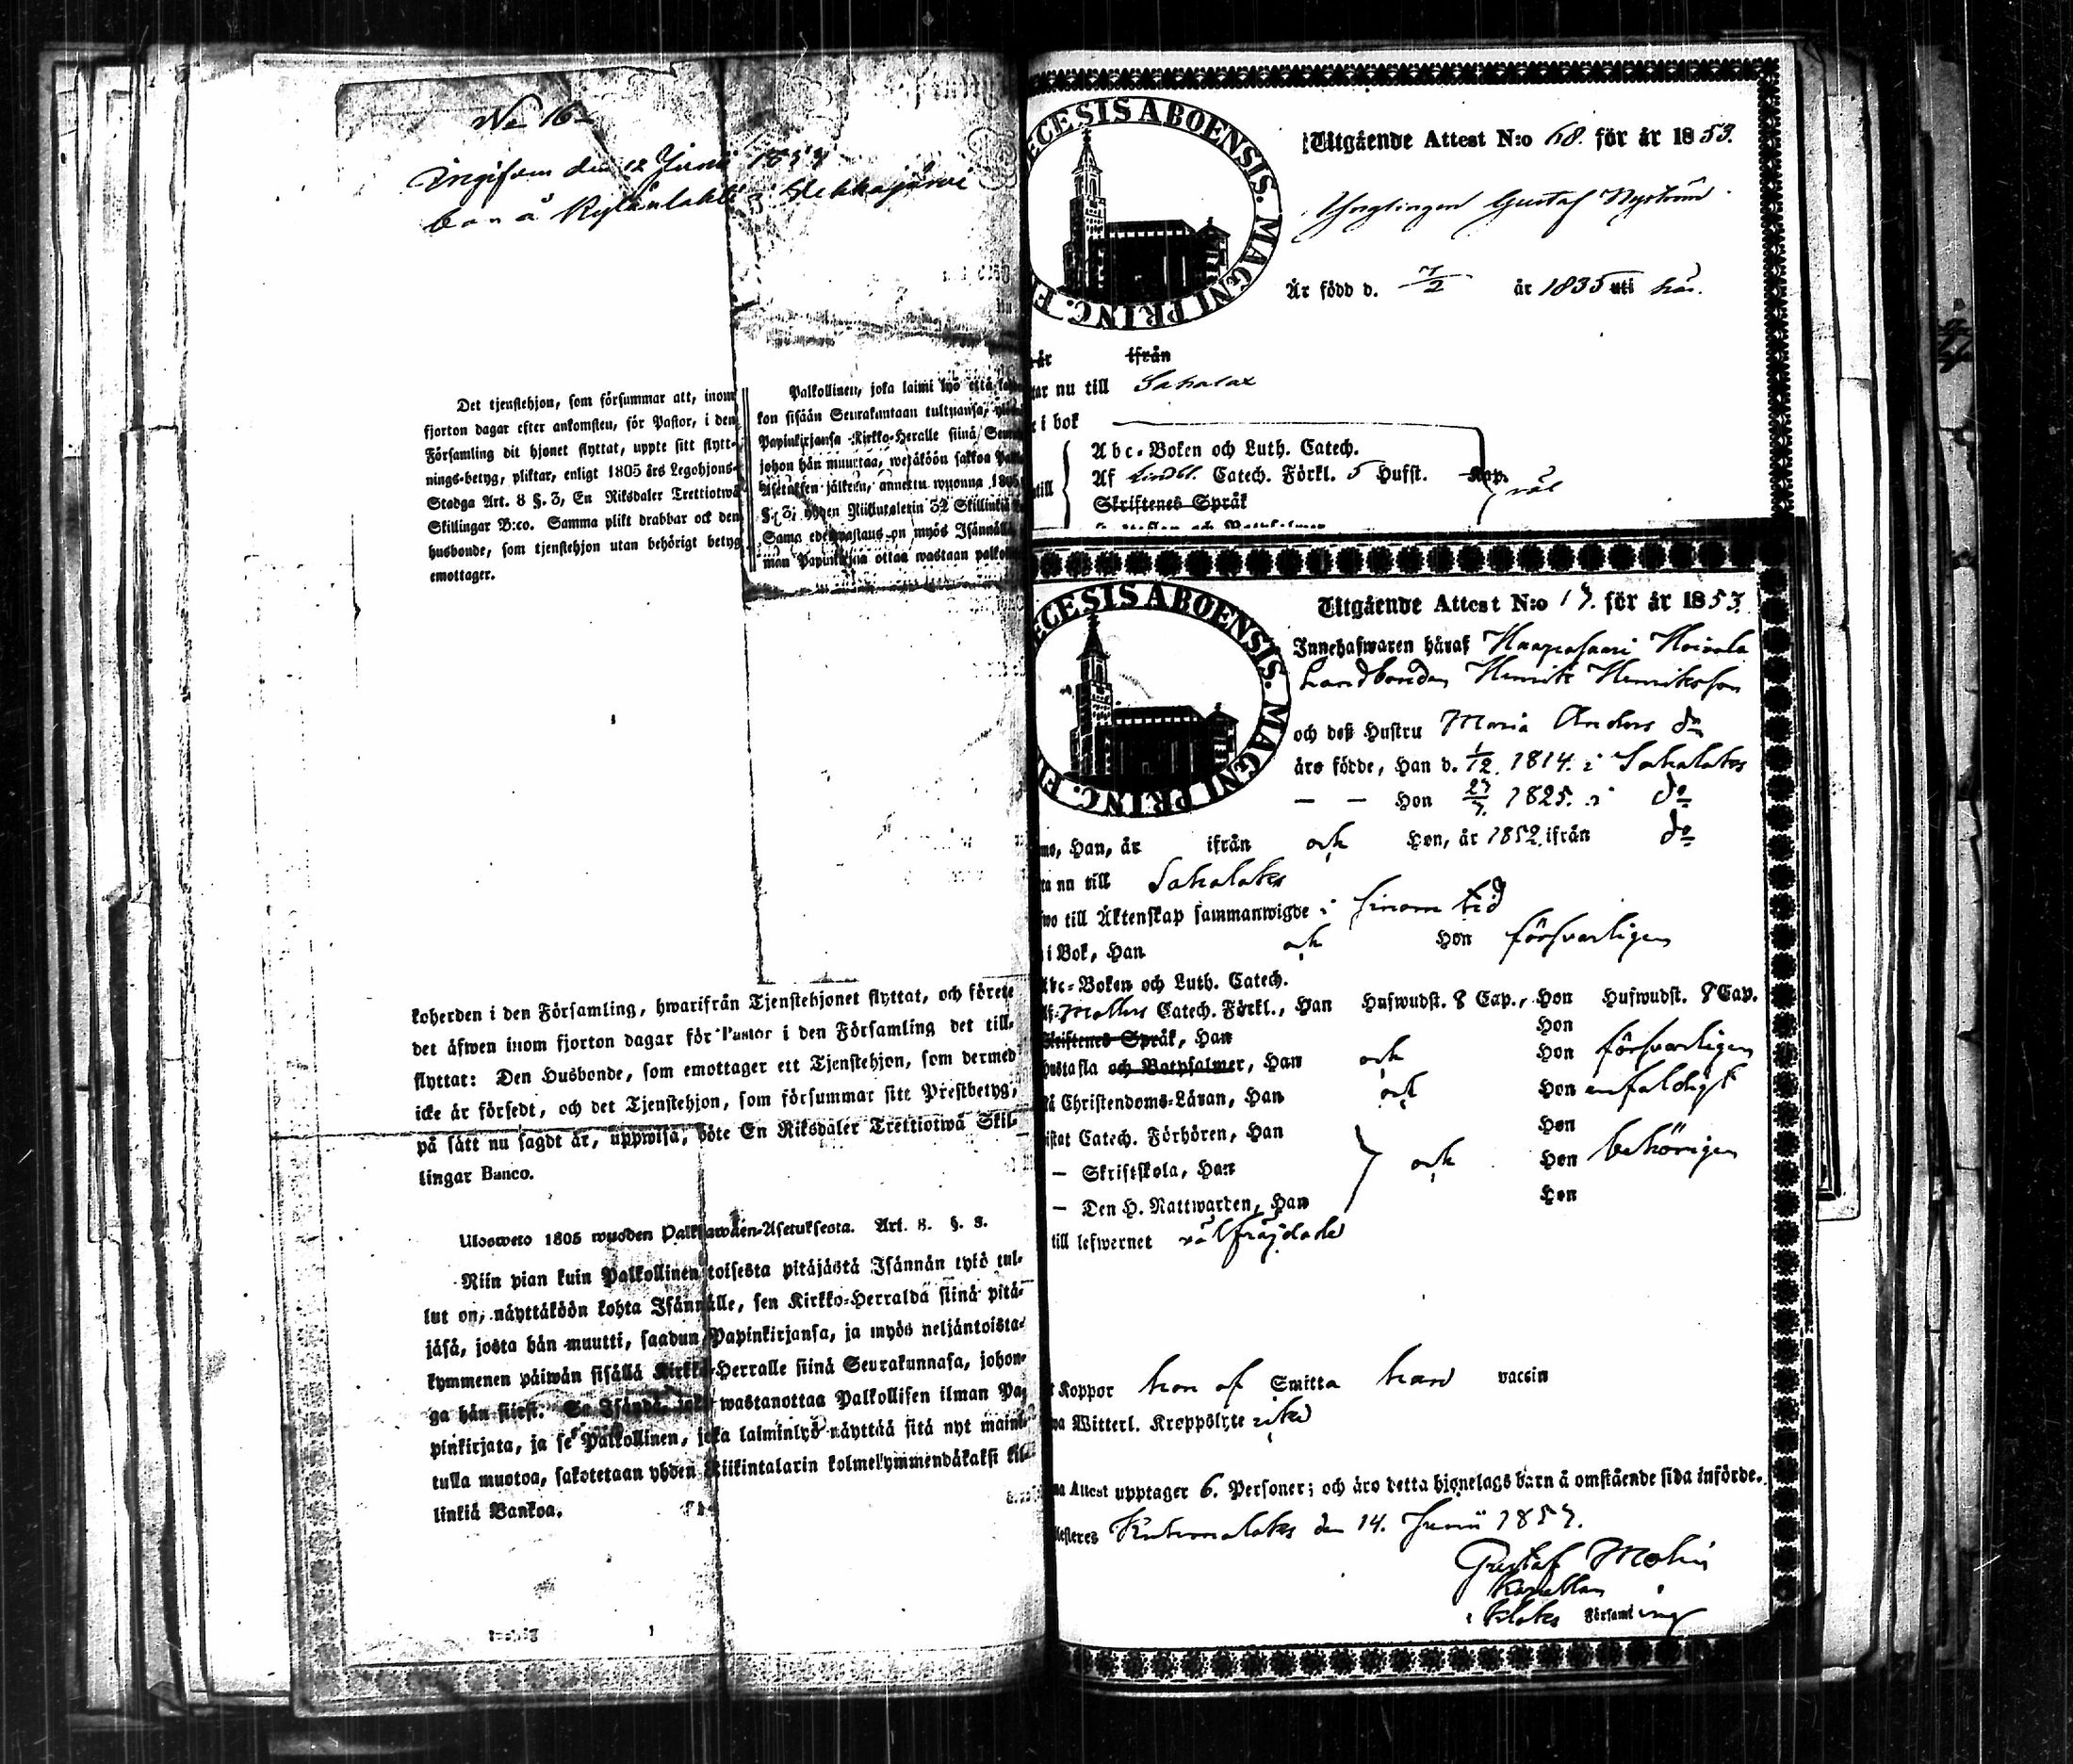 No 16
den 12 Junii
Det tjenstehjon, som försummar att, inom
fjorton dagar efter ankomsten, för Pastor, i den
Församling dit hjonet flyttat, uppte sitt flytt-
nings-betyg, pliktar, enligt 1805 års Legohjons-
Stadga Art. 8 §. 3, En Riksdaler Trettiotwå
Skillingar B:co. Samma plikt drabbar ock den
husbonde, som tjenstehjon utan behörigt betyg
emottager.
Palkollinen, joka laimi lyö että
kon sisään Seurakuntaan tultuansa,
Papinkirjansa Kirkko-Heralle siinä
johon hän muuttaa, wetäköön sakkoa
Asetuksen jälkeen, annettu wuonna 1805
§. 3, yhden Riikintalerin 32 Skillinkiä
Sama edeswastaus on myös Isännällä
män Papinkirjaa ottaa wastaan
koherden i den Församling, hwarifrån Tjenstehjonet flyttat, och förete
det äfwen inom fjorton dagar för Pastor i den Församling det till-
flyttat: Den Husbonde, som emottager ett Tjenstehjon, som dermed
icke är försedt, och det Tjenstehjon, som försummar sitt Prestbetyg,
på sätt nu sagdt är, uppwisa, böte En Riksdaler Trettiotwå Skil-
lingar Banco.
Ulosweto 1805 wuoden Palkkawäen-Asetuksesta. Art. 8. §. 3.
Niin pian kuin Palkollinen toisesta pitäjästä Isännän työ tul-
lut on, näyttäköön kohta Isännälle, sen Kirkko-Herralda siinä pitä-
jäsä, josta hän muutti, saadun Papinkirjansa, ja myös neljäntoista-
kymmenen päiwän sisällä Kirkko-Herralle siinä Seurakunnasa, johon-
ga hän siirsi. Se Isändä, joka wastanottaa Palkollisen ilman Pa-
pinkirjata, ja se Palkollinen, joka laiminlyö näyttää sitä nyt maini-
tulla muotoa, sakotetaan yhden Riikintalarin kolmekymmendäkaksi kil-
linkiä Bankoa.
ECESIS ABOENSIS. MAGNI PRINC. F
Utgående Attest N:o 68. för år 1853.
Ynglingen Gustaf Nyström
Är född d. 7/2 år 1835 uti här.
år ifrån
tar nu till Sahalax
i bok
Abc-Boken och Luth. Catech.
Af Lindbl. Catech. Förkl. 5 Hufst. Kap.
till
Skriftenes Språk
väl
ECESIS ABOENSIS. MAGNI PRINC. F
Utgående Attest N:o 17. för år 1853.
Innehafwaren häraf Haapasaari Heivola
Landbonden Henrik Henriksson
och dess Hustru Maria Anders dr
äro födde, Han d. 1/12 1814. i Sahalaks
— — Hon 27/7 1825. i do
Han, år ifrån och Hon, år 1852 ifrån do
ta nu till Sahalaks
wo till Äktenskap sammanwigde i sinom tid
i Bok, Han och Hon försvarligen
Abc-Boken och Luth. Catech.
Af Möllers Catech. Förkl., Han Hufwudst. 8 Cap., Hon Hufwudst. 8 Cap.
Skriftenes Språk, Han Hon
Hustafla och Botpsalmer, Han och Hon försvarligen
Christendoms-Läran, Han och Hon enfaldigt
istat Catech. Förhören, Han Hon
— Skriftskola, Han och Hon behörigen
— Den H. Nattwarden, Han Hon
till lefwernet välfräjdade
Koppor hon af Smitta han vaccin
Witterl. Kroppslyte icke
na Attest upptager 6. Personer; och äro detta hjonelags barn å omstående sida införde.
Kuhmalaks den 14. Junii
Gustaf Molin
Kapellan
Församling